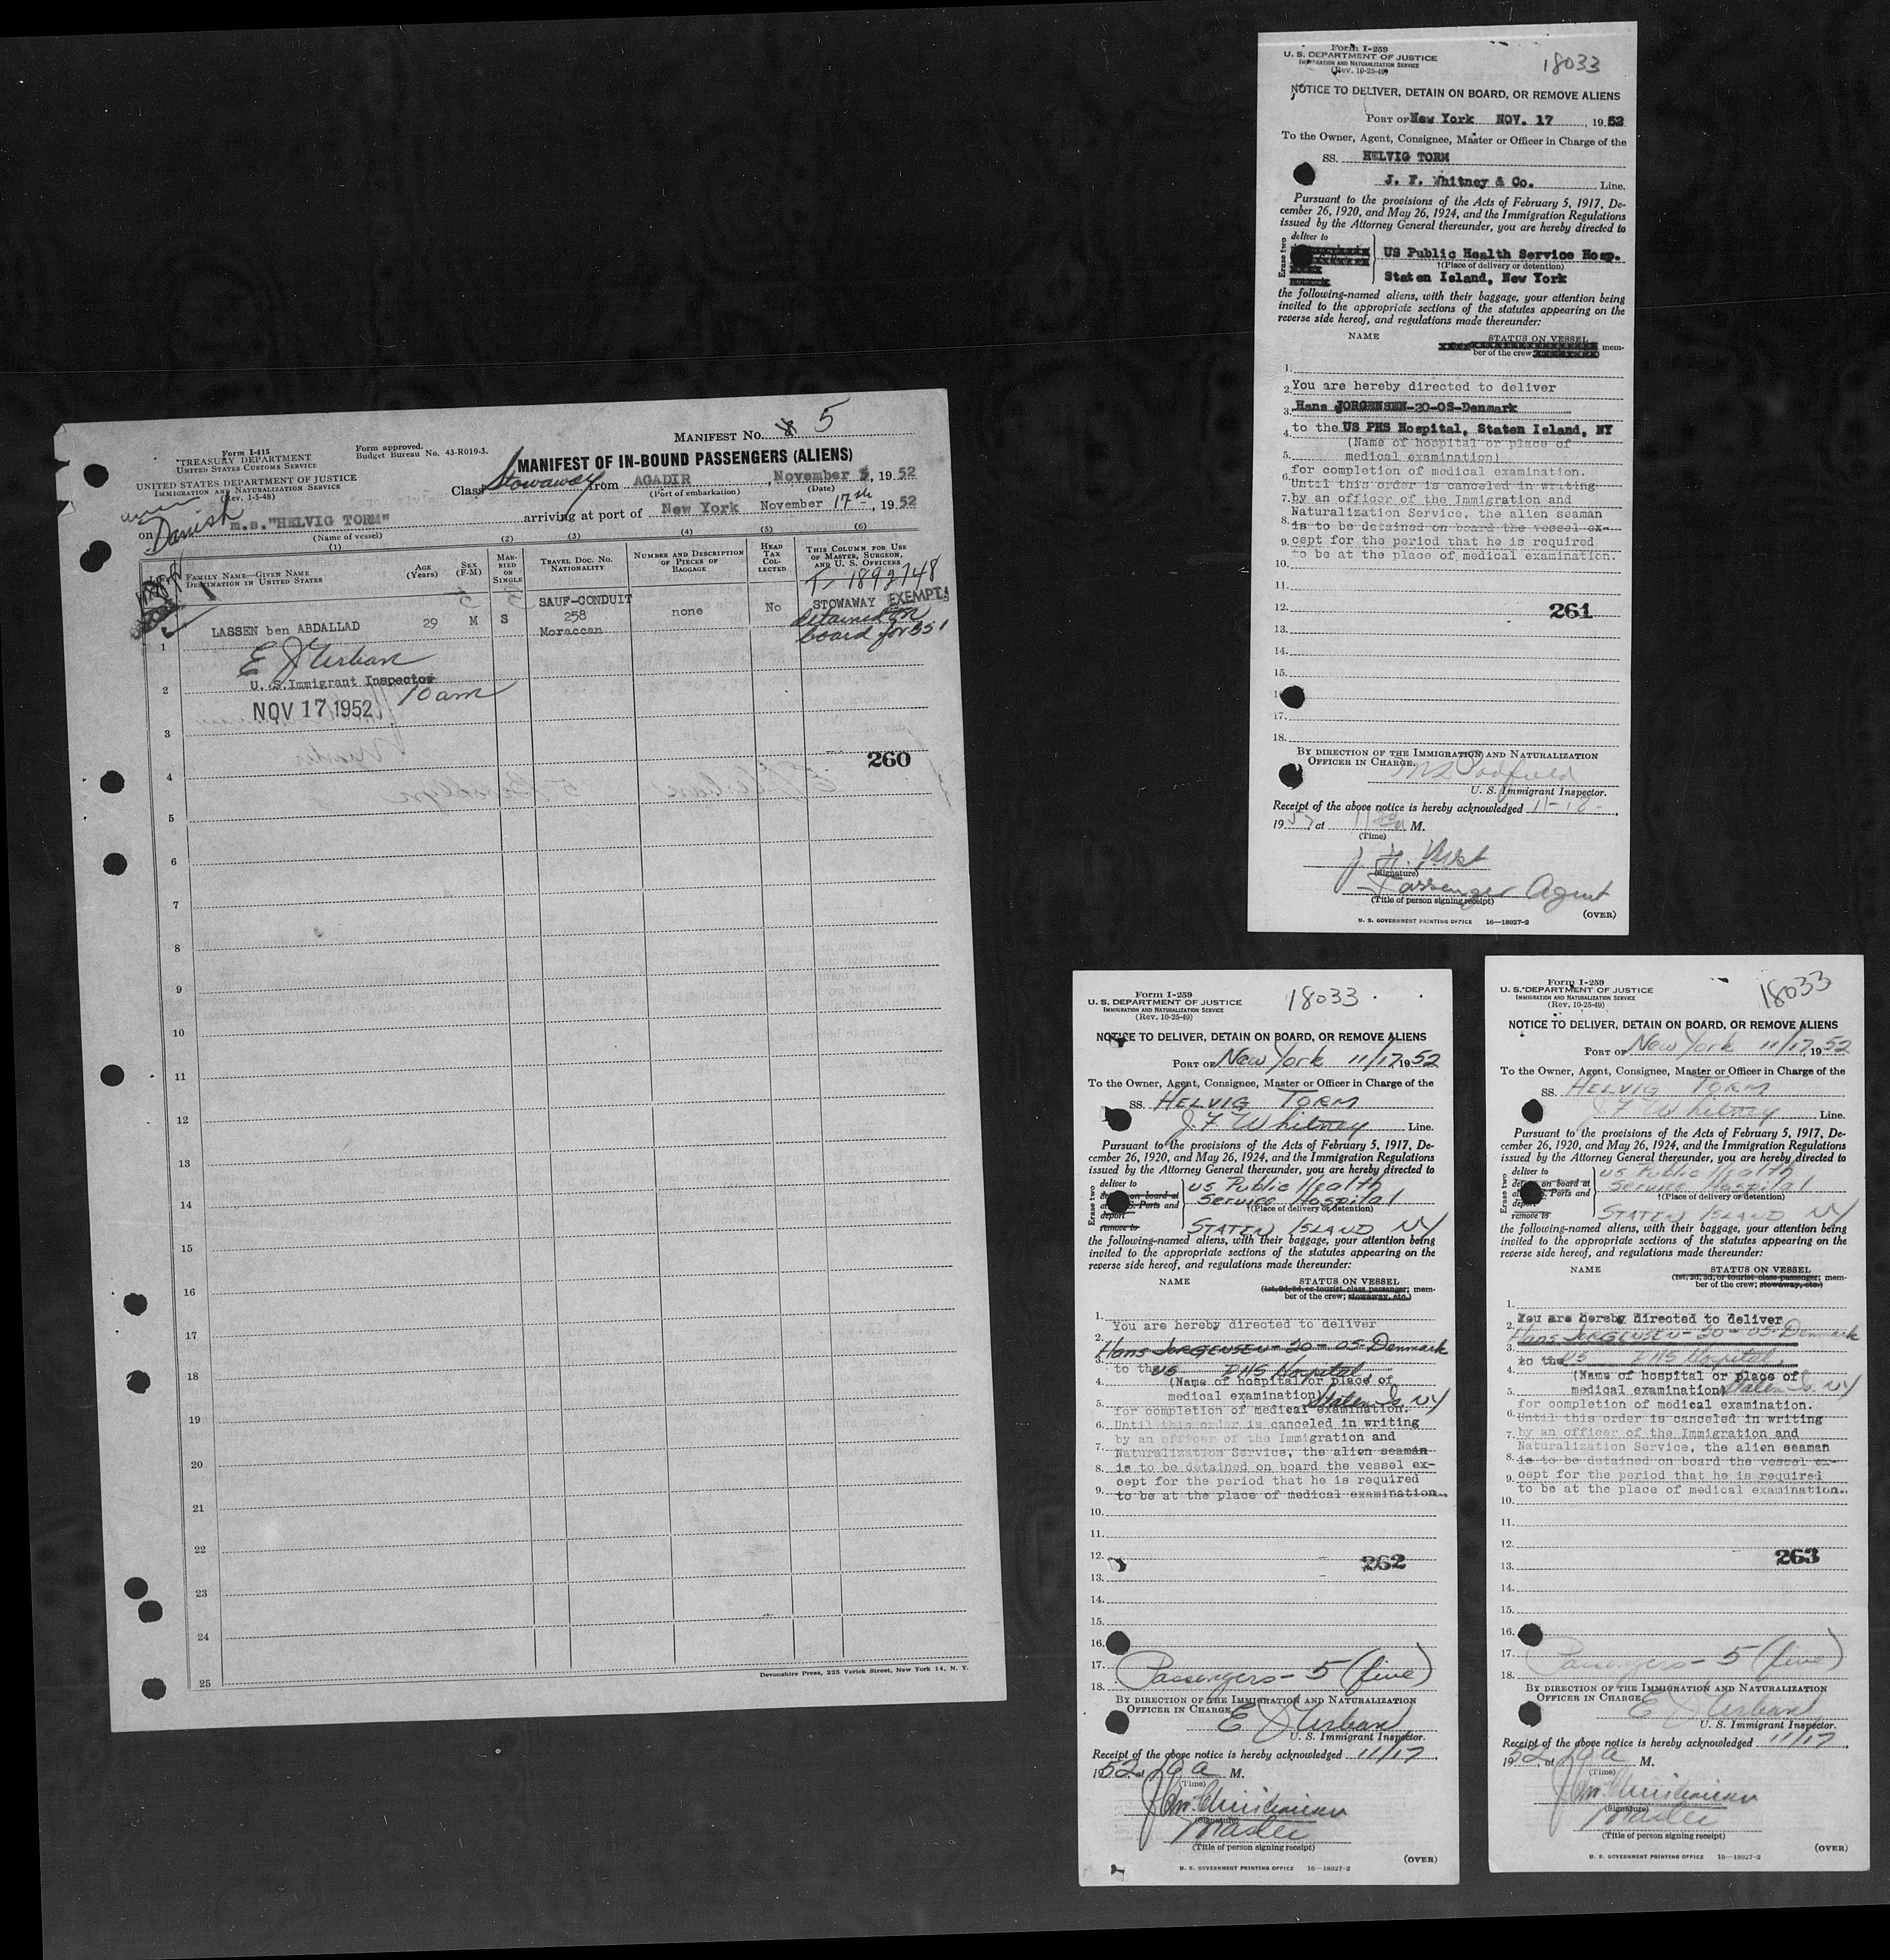 MANIFEST No. 5
Form I-415
TREASURY DEPARTMENT
UNITED STATES CUSTOMS SERVICE
Form approved.
Budget Bureau No. 43-R019-3.
UNITED STATES DEPARTMENT OF JUSTICE
IMMIGRATION AND NATURALIZATION SERVICE
(Rev. 1-5-48)
MANIFEST OF IN-BOUND PASSENGERS (ALIENS)
Class Stowaway from AGADIR, November 5, 1952
(Port of embarkation) (Date)
Danish
on m.s."HELVIG TORM" arriving at port of New York November 17th, 1952
(Name of vessel)
(1) (2) (3) (4) (5) (6)
FAMILY NAME—GIVEN NAME
DESTINATION IN UNITED STATES
AGE
(Years)
SEX
(F-M)
MAR-
RIED
OR
SINGLE
TRAVEL DOC. NO.
NATIONALITY
NUMBER AND DESCRIPTION
OF PIECES OF
BAGGAGE
HEAD
TAX
COL-
LECTED
THIS COLUMN FOR USE
OF MASTER, SURGEON,
AND U. S. OFFICERS
T-1892748
1 LASSEN ben ABDALLAD 29 M S
SAUF-CONDUIT
258
Moraccan
none No
STOWAWAY EXEMPT
detained on
board for 551
E J Urban
U. S. Immigrant Inspector
10 am
2
NOV 17 1952
3
260
4
5
6
7
8
9
10
11
12
13
14
15
16
17
18
19
20
21
22
23
24
25
Devonshire Press, 225 Varick Street, New York 14, N. Y.
Form I-259
U. S. DEPARTMENT OF JUSTICE
IMMIGRATION AND NATURALIZATION SERVICE
(Rev. 10-25-49)
18033
NOTICE TO DELIVER, DETAIN ON BOARD, OR REMOVE ALIENS
PORT OF New York NOV. 17, 1952
To the Owner, Agent, Consignee, Master or Officer in Charge of the
SS. HELVIG TORM
J. F. Whitney & Co. Line.
Pursuant to the provisions of the Acts of February 5, 1917, De-
cember 26, 1920, and May 26, 1924, and the Immigration Regulations
issued by the Attorney General thereunder, you are hereby directed to
Erase two
deliver to
US Public Health Service Hosp.
†(Place of delivery or detention)
Staten Island, New York
the following-named aliens, with their baggage, your attention being
invited to the appropriate sections of the statutes appearing on the
reverse side hereof, and regulations made thereunder:
NAME STATUS ON VESSEL
mem-
ber of the crew
1.
2. You are hereby directed to deliver
3. Hans JORGENSEN-20-OS-Denmark
4. to the US PHS Hospital, Staten Island, NY
(Name of hospital or place of
5. medical examination)
for completion of medical examination.
6. Until this order is canceled in writing
7. by an officer of the Immigration and
Naturalization Service, the alien seaman
8. is to be detained on board the vessel ex-
9. cept for the period that he is required
to be at the place of medical examination.
10.
11.
12. 261
13.
14.
15.
17.
18.
BY DIRECTION OF THE IMMIGRATION AND NATURALIZATION
OFFICER IN CHARGE.
U. S. Immigrant Inspector.
Receipt of the above notice is hereby acknowledged 11-18-,
1952, at 11 M.
(Time)
(Signature)
Passenger Agent
(Title of person signing receipt)
U. S. GOVERNMENT PRINTING OFFICE 16—18927-2
(OVER)
Form I-259
U. S. DEPARTMENT OF JUSTICE
IMMIGRATION AND NATURALIZATION SERVICE
(Rev. 10-25-49)
18033
NOTICE TO DELIVER, DETAIN ON BOARD, OR REMOVE ALIENS
PORT OF New York 11/17 1952
To the Owner, Agent, Consignee, Master or Officer in Charge of the
SS. HELVIG TORM
J. F Whitney Line.
Pursuant to the provisions of the Acts of February 5, 1917, De-
cember 26, 1920, and May 26, 1924, and the Immigration Regulations
issued by the Attorney General thereunder, you are hereby directed to
Erase two
deliver to
on board at
S. Ports and
deport
remove to
US Public Health
Service Hospital
†(Place of delivery or detention)
STATEN ISLAND NY
the following-named aliens, with their baggage, your attention being
invited to the appropriate sections of the statutes appearing on the
reverse side hereof, and regulations made thereunder:
NAME STATUS ON VESSEL
(1st, 2d, 3d, or tourist class passenger; mem-
ber of the crew; stowaway, etc.)
1.
You are hereby directed to deliver
2. Hans JORGENSEN-20-OS-Denmark
3. to the US PHS Hospital
4. (Name of hospital or place of
medical examination) Staten Is. NY
5. for completion of medical examination.
6. Until this order is canceled in writing
by an officer of the Immigration and
7. Naturalization Service, the alien seaman
8. is to be detained on board the vessel ex-
cept for the period that he is required
9. to be at the place of medical examination.
10.
11.
12. 262
13.
14.
15.
16.
17. Passengers - 5 (five)
18.
BY DIRECTION OF THE IMMIGRATION AND NATURALIZATION
OFFICER IN CHARGE.
E J Urban
U. S. Immigrant Inspector.
Receipt of the above notice is hereby acknowledged 11/17,
1952, at 10 a M.
(Time)
(Signature)
Master
(Title of person signing receipt)
(OVER)
U. S. GOVERNMENT PRINTING OFFICE 16—18927-2
Form I-259
U. S. DEPARTMENT OF JUSTICE
IMMIGRATION AND NATURALIZATION SERVICE
(Rev. 10-25-49)
18033
NOTICE TO DELIVER, DETAIN ON BOARD, OR REMOVE ALIENS
PORT OF New York 11/17, 1952
To the Owner, Agent, Consignee, Master or Officer in Charge of the
SS. HELVIG TORM
J F Whitney Line.
Pursuant to the provisions of the Acts of February 5, 1917, De-
cember 26, 1920, and May 26, 1924, and the Immigration Regulations
issued by the Attorney General thereunder, you are hereby directed to
Erase two
deliver to
on board at
S. Ports and
deport
remove to
US Public Health
Service Hospital
†(Place of delivery or detention)
STATEN ISLAND NY
the following-named aliens, with their baggage, your attention being
invited to the appropriate sections of the statutes appearing on the
reverse side hereof, and regulations made thereunder:
NAME STATUS ON VESSEL
(1st, 2d, 3d, or tourist class passenger; mem-
ber of the crew; stowaway, etc.)
1.
You are hereby directed to deliver
2. Hans JORGENSEN-20-OS-Denmark
3. to the US PHS Hospital
4. (Name of hospital or place of
5. medical examination) Staten Is. NY
for completion of medical examination.
6. Until this order is canceled in writing
7. by an officer of the Immigration and
Naturalization Service, the alien seaman
8. is to be detained on board the vessel ex-
9. cept for the period that he is required
to be at the place of medical examination.
10.
11.
12.
263
13.
14.
15.
16.
17. Passengers - 5 (five)
18.
BY DIRECTION OF THE IMMIGRATION AND NATURALIZATION
OFFICER IN CHARGE.
E J Urban
U. S. Immigrant Inspector.
Receipt of the above notice is hereby acknowledged 11/17,
1952, at 10 a M.
(Time)
(Signature)
Master
(Title of person signing receipt)
(OVER)
U. S. GOVERNMENT PRINTING OFFICE 16—18927-2